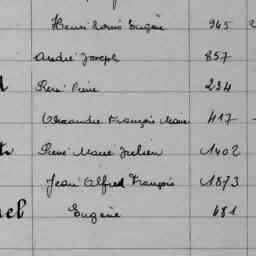 Henri Louis Eugène 945 2
André Joseph 857
René Pierre 234
Alexandre François Marie 417
Pierre Marie Julien 1402
Jean Alfred François 1873
el Eugène 481